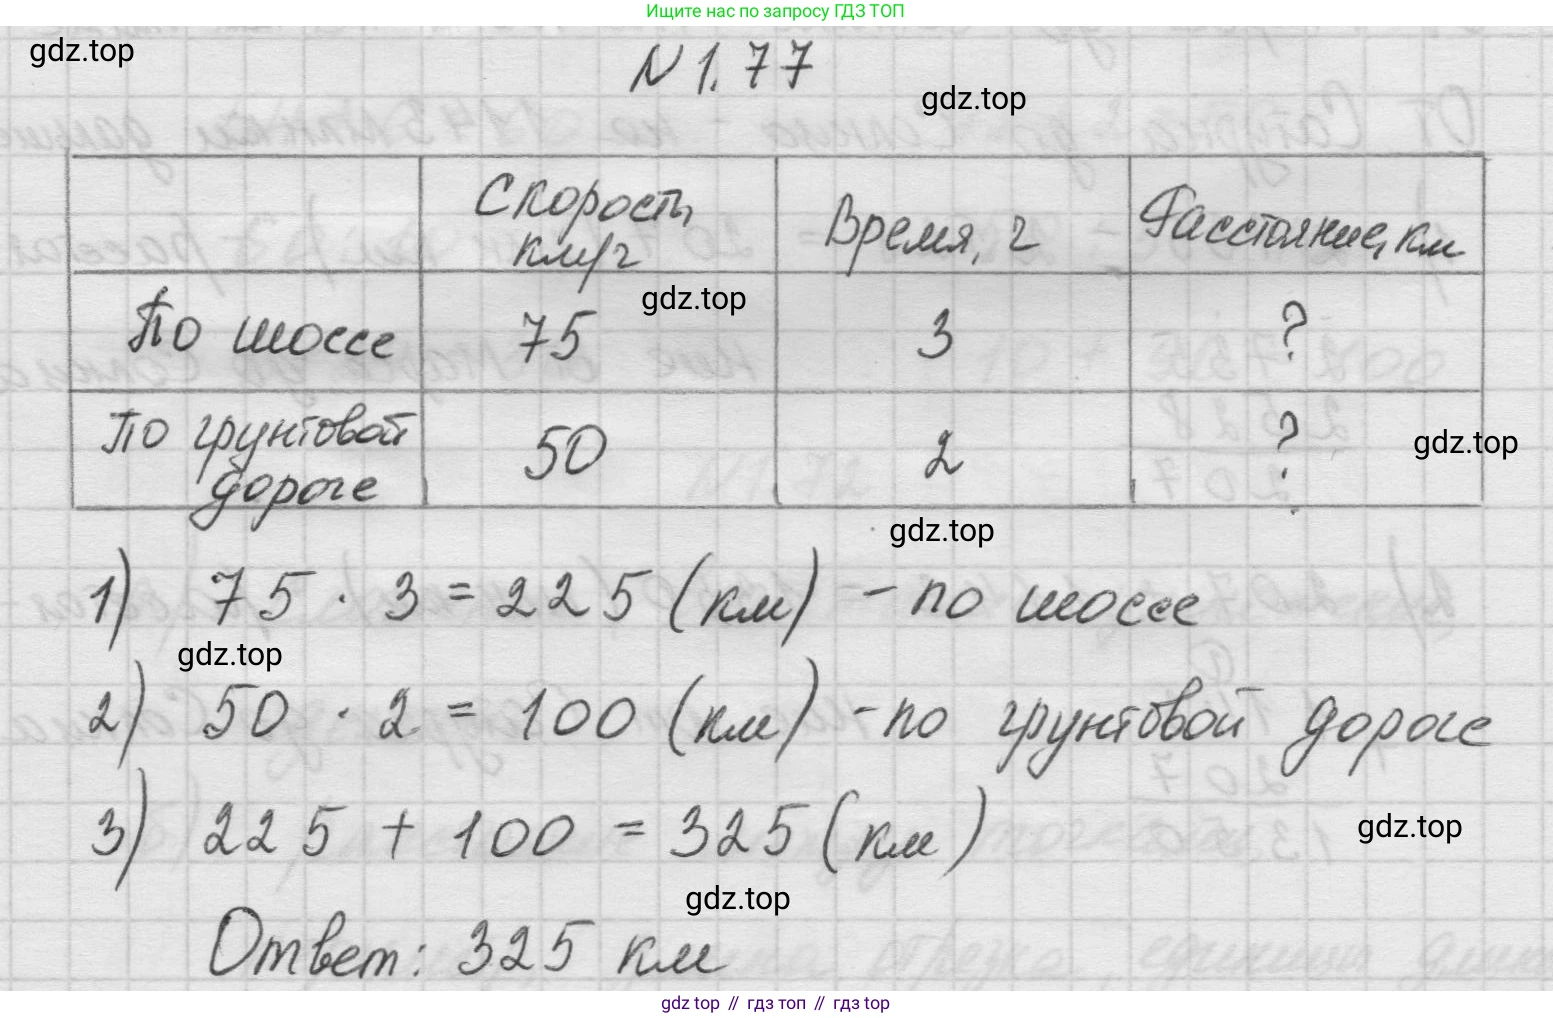 Ищите нас по запросу ГДЗ ТОП
gdz.top
N 1.77
gdz.top
Скорость, км/ч Время, ч Расстояние, км
gdz.top
По шоссе 75 3 ?
По грунтовой дороге 50 2 ?
gdz.top
gdz.top
1) 75 · 3 = 225 (км) - по шоссе
gdz.top
2) 50 · 2 = 100 (км) - по грунтовой дороге
3) 225 + 100 = 325 (км)
gdz.top
gdz.top
Ответ: 325 км
gdz top // гдз топ // гдз top